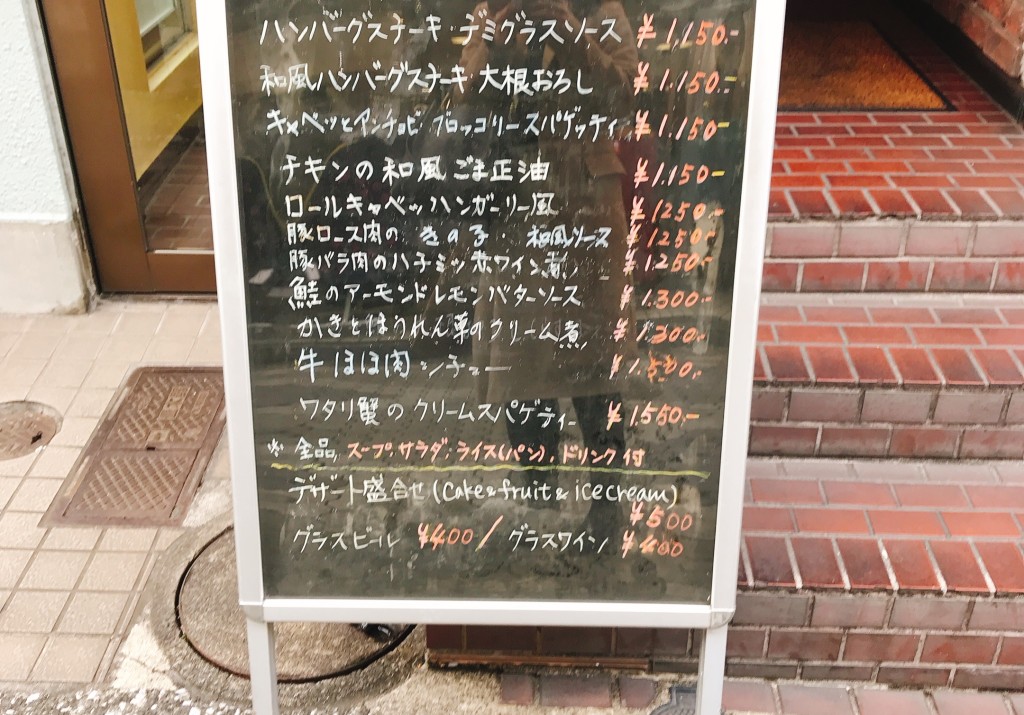 ハンバーグステーキ・デミグラスソース ¥1,150.-
和風ハンバーグステーキ 大根おろし ¥1.150.-
キャベツとアンチョビ ブロッコリースパゲッティ ¥1.150-
チキンの和風ごま正油 ¥1.150-
ロールキャベツハンガーリー風 ¥1250.-
豚ロース肉の きのこ・和風ソース ¥1250-
豚バラ肉のハチミツ赤ワイン煮 ¥1.250-
鮭のアーモンドレモンバターソース ¥1.300.-
かきとほうれん草のクリーム煮 ¥1.300.-
牛ほほ肉シチュー ¥1.500.-
ワタリ蟹のクリームスパゲティー ¥1.550.-
※全品,スープ.サラダ.ライス(パン).ドリンク付
デザート盛合せ(Cake&fruit&icecream)
¥500
グラスビール ¥400 / グラスワイン ¥400